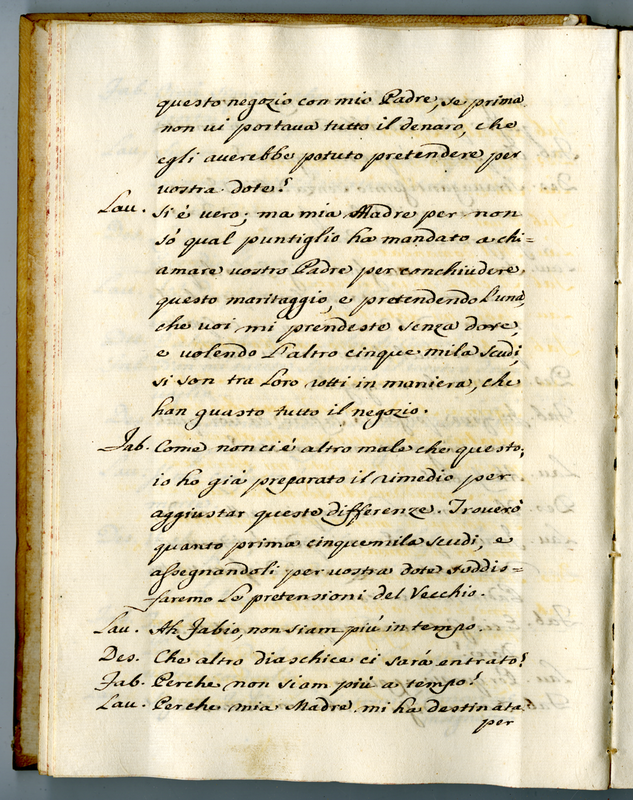 questo negozio con mio Padre, se prima
non vi portava tutto il denaro, che
egli averebbe potuto pretendere per
vostra dote?
Lau. Si é vero; ma mia Madre per non
só qual puntiglio ha mandato a chi=
amare vostro Padre per conchiudere
questo maritaggio, e pretendendo l'una,
che voi mi prendeste senza dote,
e volendo l'altro cinque mila scudi,
si son tra loro rotti in maniera, che
han guasto tutto il negozio.
Fab. Come non ci é altro male che questo,
io ho giá preparato il rimedio per
aggiustar queste differenze. Troveró
quanto prima cinquemila scudi, e
assegnandoli per vostra dote soddis=
faremo le pretensioni del Vecchio.
Lau. Ah Fabio, non siam piú in tempo.
Des. Che altro diaschice ci sará entrato?
Fab. Perche non siam piú a tempo?
Lau. Perche mia Madre mi ha destinata
per